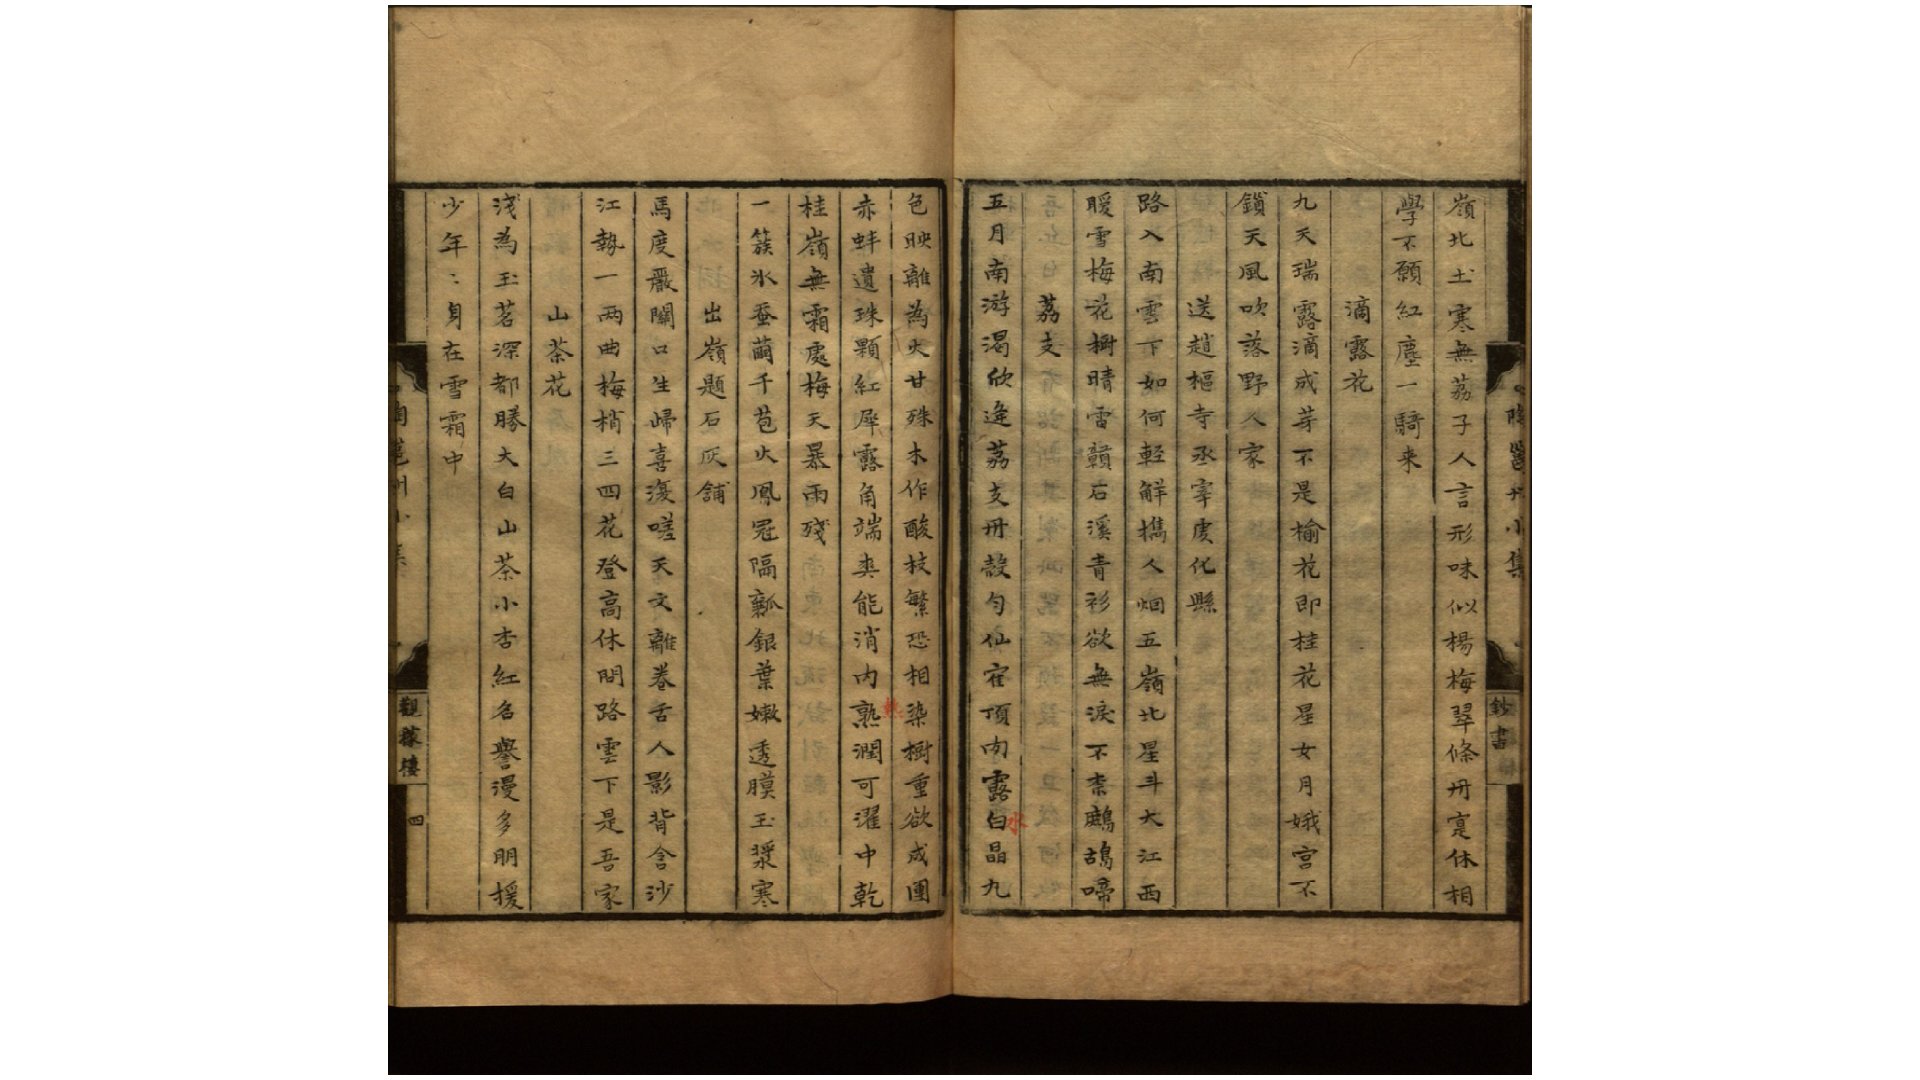 嶺北土寒無荔子人言形味似楊梅翠條丹寔休相
學不願紅塵一騎来
滴露花
九天瑞露滴成芽不是榆花即桂花星女月娥宫不
鎖天風吹落野人家
送趙樞寺丞宰虔化縣
路入南雲下如何輕解擕人烟五嶺北星斗大江西
暖雪梅花樹晴雷贛石溪青衫欲無淚不柰鷓鴣啼
荔支
五月南游渴欣逢荔支丹殼勻仙寉頂肉露白晶九
水
色映離為火甘殊木作酸枝繁恐相染樹重欲成團
赤蚌遺珠顆紅犀露角端爽能消内熟潤可濯中乾
熱
桂嶺無霜處梅天暴雨殘
一簇氷蚕繭千苞火鳳冠隔瓤銀葉嫩透膜玉漿寒
出嶺題石灰舖
馬度嚴關口生歸喜復嗟天文離卷舌人影背含沙
江勢一兩曲梅梢三四花登高休問路雲下是吾家
山茶花
淺為玉茗深都勝大白山茶小杏紅名譽漫多朋援
少年年身在雪霜中
陶邕州小集
鈔書
陶邕州小集
觀稼樓
四